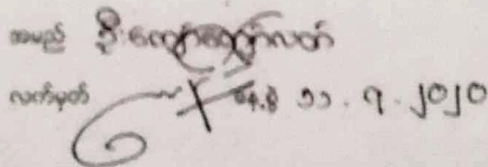 အမည် ဦးကျော်ကျော်လတ်
လက်မှတ် နေ့စွဲ ၁၁.၇.၂၀၂၀